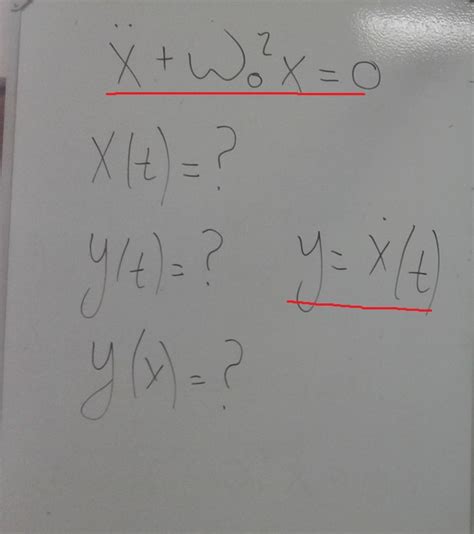 ẍ + ω₀² x = 0
x(t) = ?
y(t) = ? y = ẋ(t)
y(x) = ?